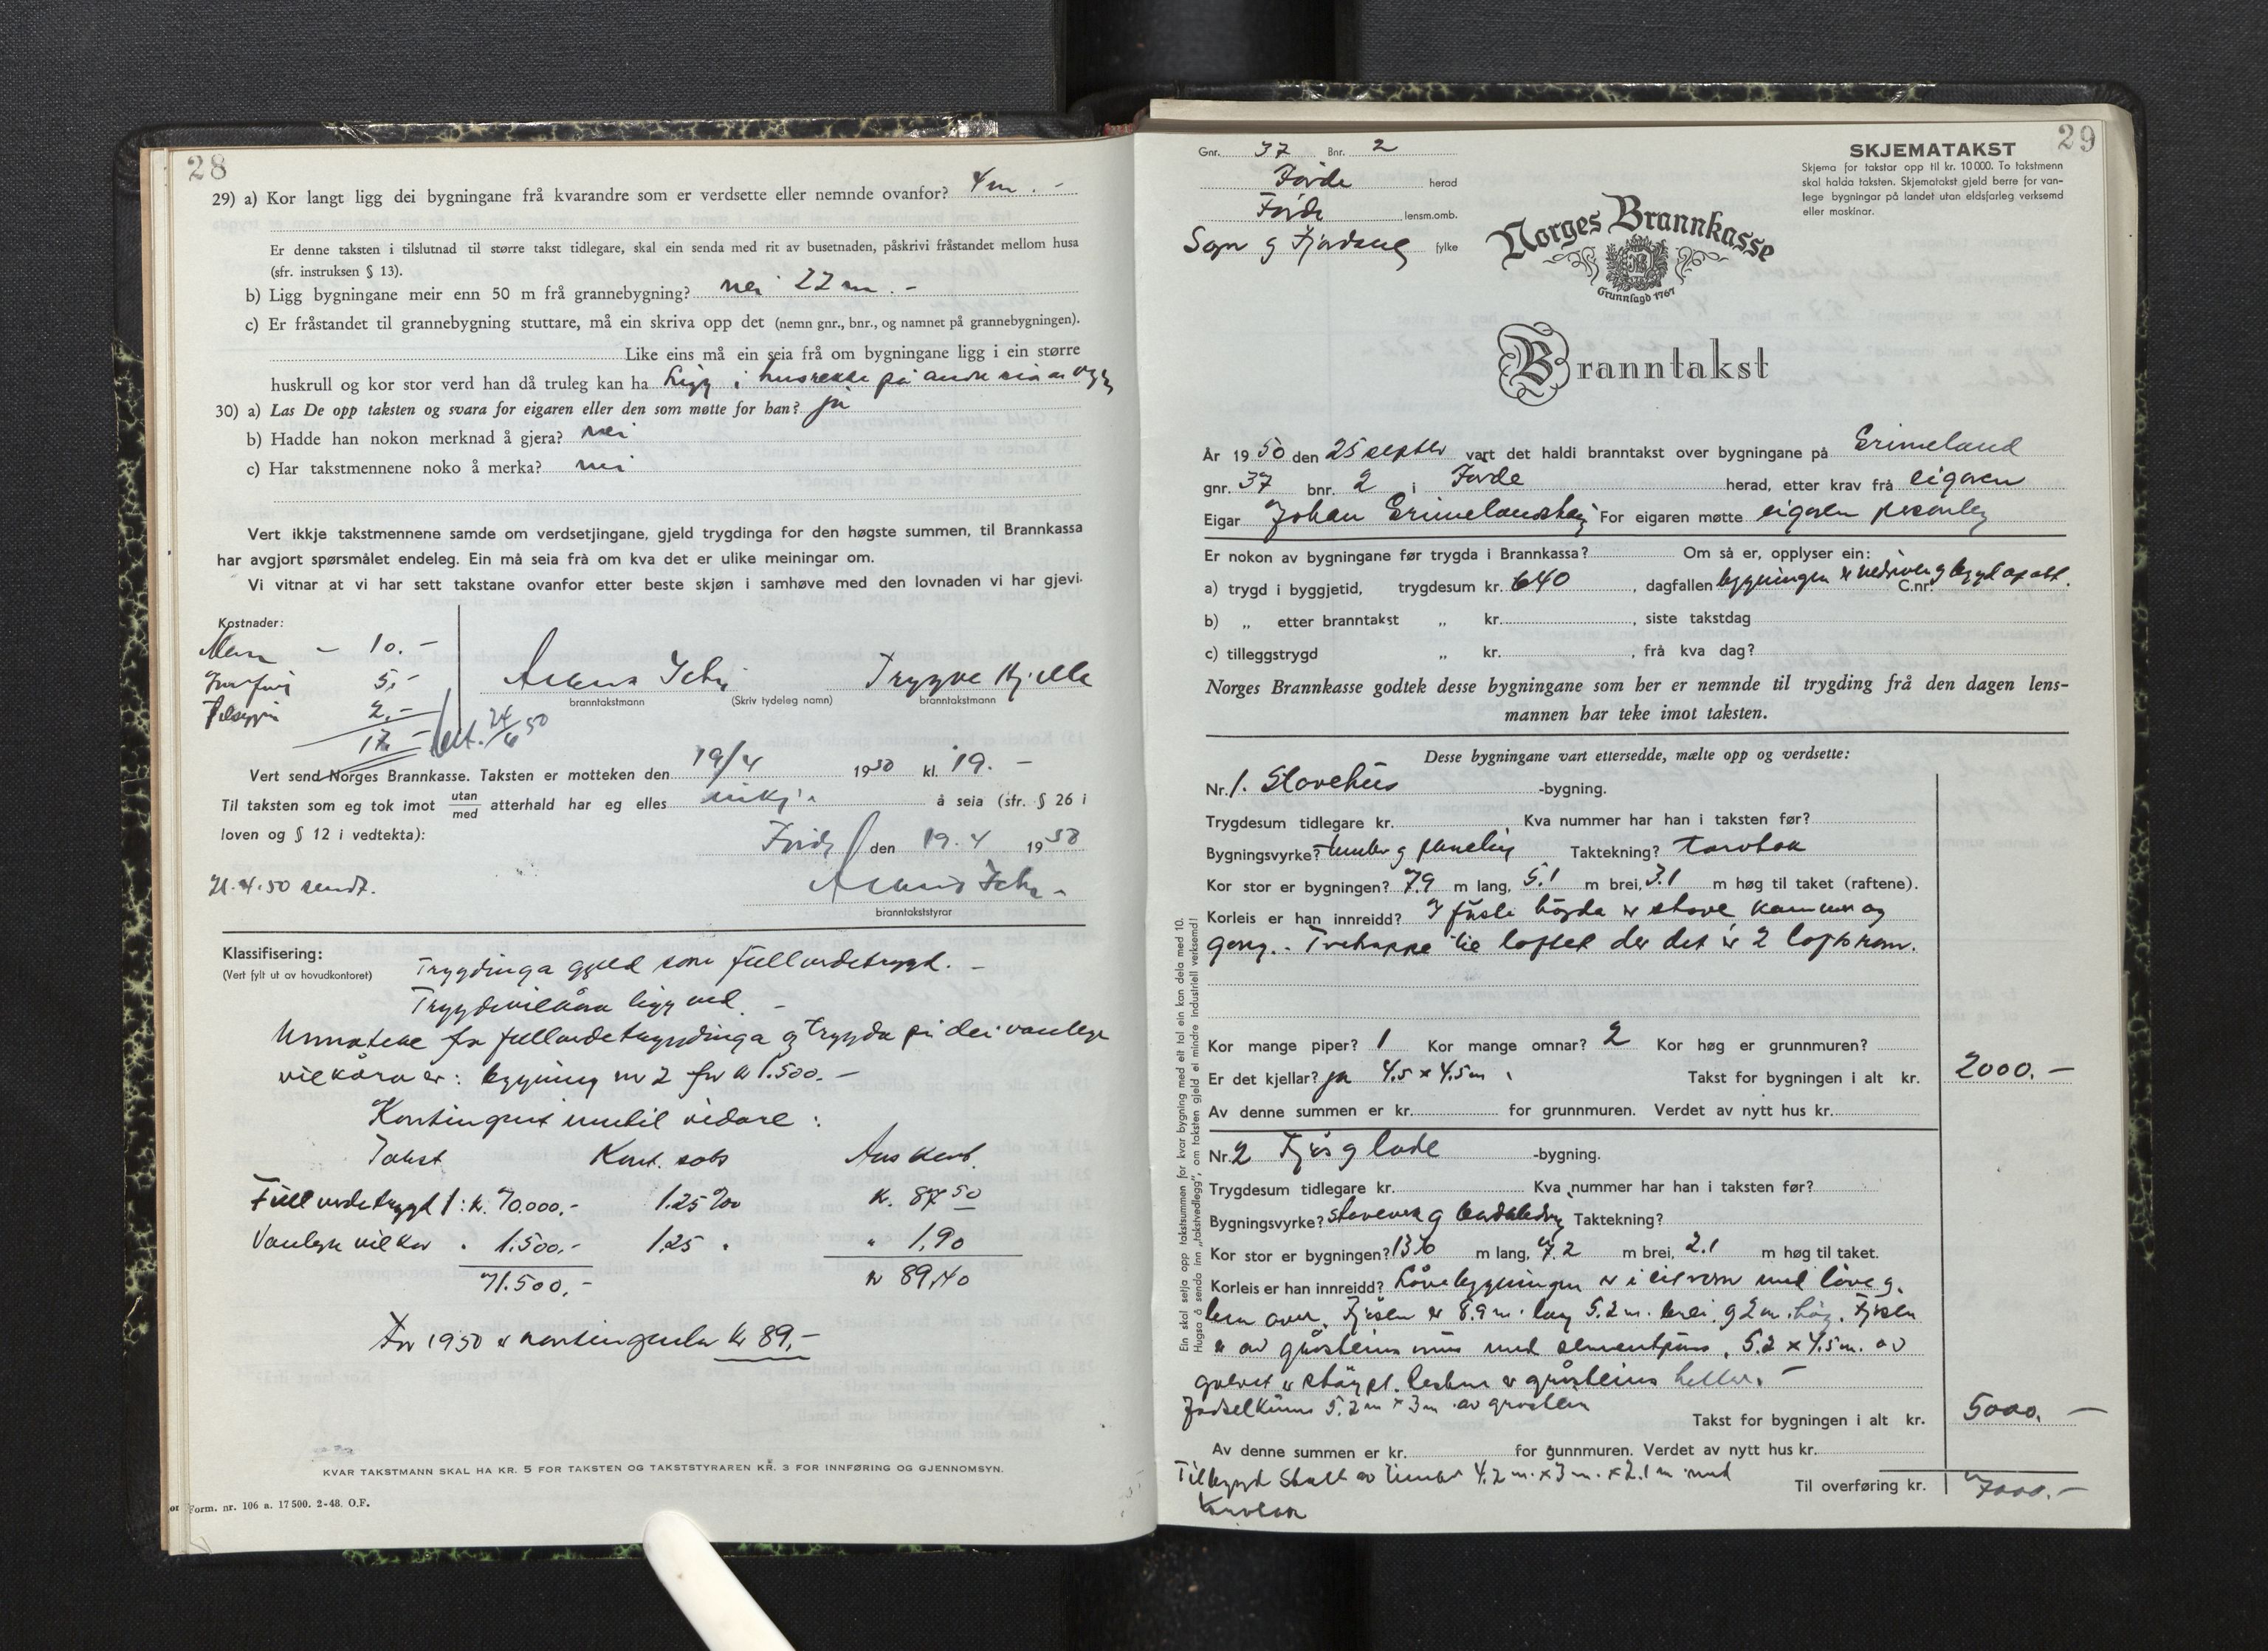 28
29) a) Kor langt ligg dei bygningane frå kvarandre som er verdsette eller nemnde ovanfor? 4 m. -
Er denne taksten i tilslutnad til større takst tidlegare, skal ein senda med rit av busetnaden, påskrivi fråstandet mellom husa
(sfr. instruksen § 13).
b) Ligg bygningane meir enn 50 m frå grannebygning? nei 22 m. -
c) Er fråstandet til grannebygning stuttare, må ein skriva opp det (nemn gnr., bnr., og namnet på grannebygningen).
Like eins må ein seia frå om bygningane ligg i ein større
huskrull og kor stor verd han då truleg kan ha Ligg i husrekke på andre sia av veg
30) a) Las De opp taksten og svara for eigaren eller den som møtte for han? ja
b) Hadde han nokon merknad å gjera? nei
c) Har takstmennene noko å merka? nei
Vert ikkje takstmennene samde om verdsetjingane, gjeld trygdinga for den høgste summen, til Brannkassa
har avgjort spørsmålet endeleg. Ein må seia frå om kva det er ulike meiningar om.
Vi vitnar at vi har sett takstane ovanfor etter beste skjøn i samhøve med den lovnaden vi har gjevi.
Kostnader:
Menn - 10.-
Innføring 5,-
2,-
17.- bet. 24/6 50
Trygve Hjelle
branntakstmann (Skriv tydeleg namn) branntakstmann
Vert send Norges Brannkasse. Taksten er motteken den 19/4 1950 kl. 19. -
Til taksten som eg tok imot utan/med atterhald har eg elles inkje å seia (sfr. § 26 i
loven og § 12 i vedtekta):
Førde den 19.4 1950
21.4.50 sendt.
branntakststyrar
Klassifisering:
(Vert fylt ut av hovudkontoret)
Trygdinga gjeld som fullverdetrygd. -
Trygdevilkåra ligg ved -
Unnateke fra fullverdetrygdinga og trygda på dei vanlege
vilkåra er: bygning nr 2 for kr 1.500. -
Kontingent inntil vidare :
Takst Kont. sats Års kont.
Fullverdetrygd 1: kr. 70.000.- 1.25 ‰ kr. 87 50
Vanlege vilkår " 1.500.- 1,25 " " 1,90
71.500,- kr 89,40
For 1950 er kontingenten kr 89,-
KVAR TAKSTMANN SKAL HA KR. 5 FOR TAKSTEN OG TAKSTSTYRAREN KR. 3 FOR INNFØRING OG GJENNOMSYN.
Form. nr. 106 a. 17 500. 2-48. O.F.
29
Gnr. 37 Bnr. 2
Førde herad
Førde lensm.omb.
Sogn og Fjordane fylke
SKJEMATAKST
Skjema for takstar opp til kr. 10 000. To takstmenn
skal halda taksten. Skjematakst gjeld berre for van-
lege bygningar på landet utan eldsfarleg verksemd
eller maskinar.
Norges Brannkasse
Grunnlagd 1767
Branntakst
År 1950 den 25 septbr vart det haldi branntakst over bygningane på Erimeland
gnr. 37 bnr. 2 i Førde herad, etter krav frå eigaren
Eigar Johan Erimelandshaug For eigaren møtte eigaren personleg
Er nokon av bygningane før trygda i Brannkassa? Om så er, opplyser ein:
a) trygd i byggjetid, trygdesum kr. 640, dagfallen bygningen er nedriven og bygd opp att. C.nr.
b) „ etter branntakst „ kr. , siste takstdag
c) tilleggstrygd „ kr. , frå kva dag?
Norges Brannkasse godtek desse bygningane som her er nemnde til trygding frå den dagen lens-
mannen har teke imot taksten.
Desse bygningane vart ettersedde, mælte opp og verdsette:
Nr. 1. Stovehus -bygning.
Trygdesum tidlegare kr. Kva nummer har han i taksten før?
Bygningsvyrke? tømber og paneling Taktekning? torvtak
Kor stor er bygningen? 7.9 m lang, 5.1 m brei, 3.1 m høg til taket (raftene).
Korleis er han innreidd? I fyrste høgda er stove kammer og
gang. Trehappe til loftet der det er 2 loftsrom.
Kor mange piper? 1 Kor mange omnar? 2 Kor høg er grunnmuren?
Er det kjellar? ja 4.5 x 4.5 m. Takst for bygningen i alt kr. 2000. -
Av denne summen er kr. for grunnmuren. Verdet av nytt hus kr.
Nr. 2 Fjøs og løde -bygning.
Trygdesum tidlegare kr. Kva nummer har han i taksten før?
Bygningsvyrke? staveverk og bordkledning Taktekning?
Kor stor er bygningen? 13.0 m lang, 7.2 m brei, 2.1 m høg til taket.
Korleis er han innreidd? Lövebygningen er i eit rom med löve og
lem over. Fjøsen er 8.9 m. lang 5.2 m. brei og 2 m. høg. Fjøsen
er av gråsteins mur med sementpuss. 5.2 x 4.5 m. av
golvet er støypt. Resten er gråsteins heller. -
Gjødselkum 5.2 m x 3 m av gråstein
Takst for bygningen i alt kr. 5000. -
Av denne summen er kr. for gunnmuren. Verdet av nytt hus kr.
Tilbygd Stall av timber 4.2 m. x 3 m. x 2.1 m med
torvtak
Til overføring kr. 7000. -
Ein skal setja opp takstsummen for kvar bygning med eit tal ein kan dela med 10.
Hugsa å senda inn „takstvedlegg”, om taksten gjeld ei mindre industriell verksemd!